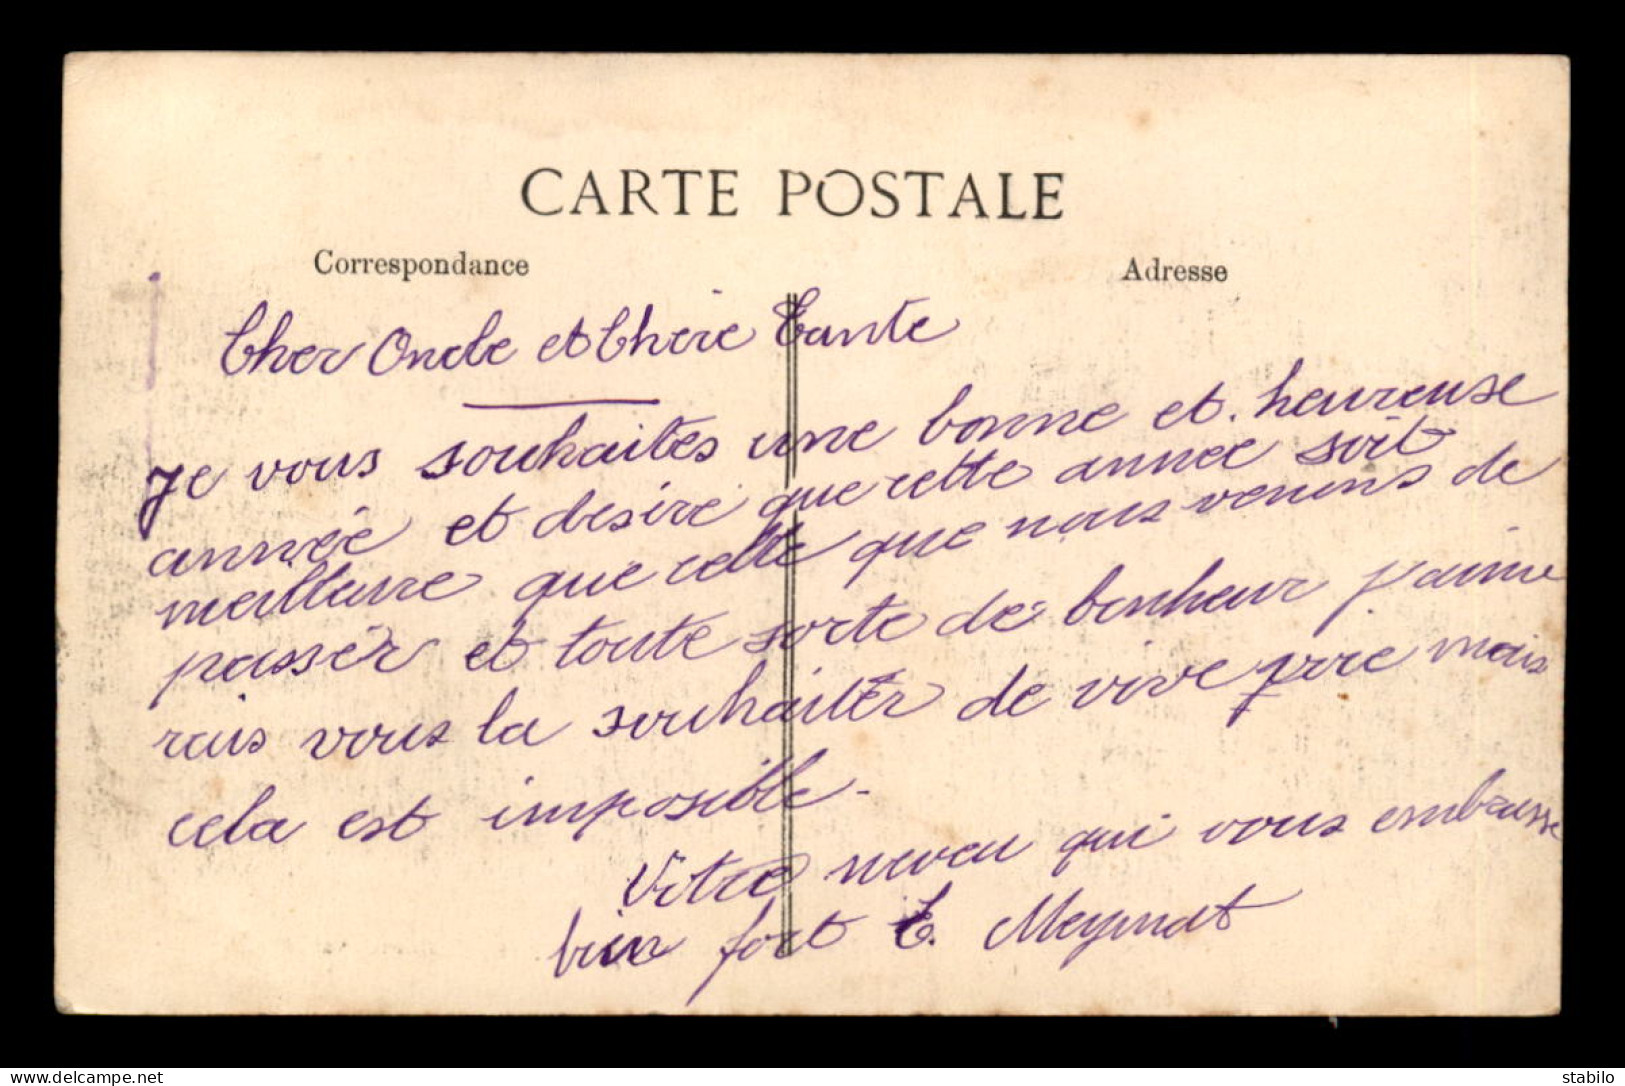 CARTE POSTALE
Correspondance
Adresse
Cher Oncle et Chère Tante
Je vous souhaites une bonne et heureuse
année et desire que cette année soit
meilleure que celle que nous venons de
passér et toute sorte de bonheur j'aime
rais vous la souhaiter de vive voie mais
cela est imposible.
Votre neveu qui vous embrasse
bien fort E. Meynat
delcampe.net
stabilo